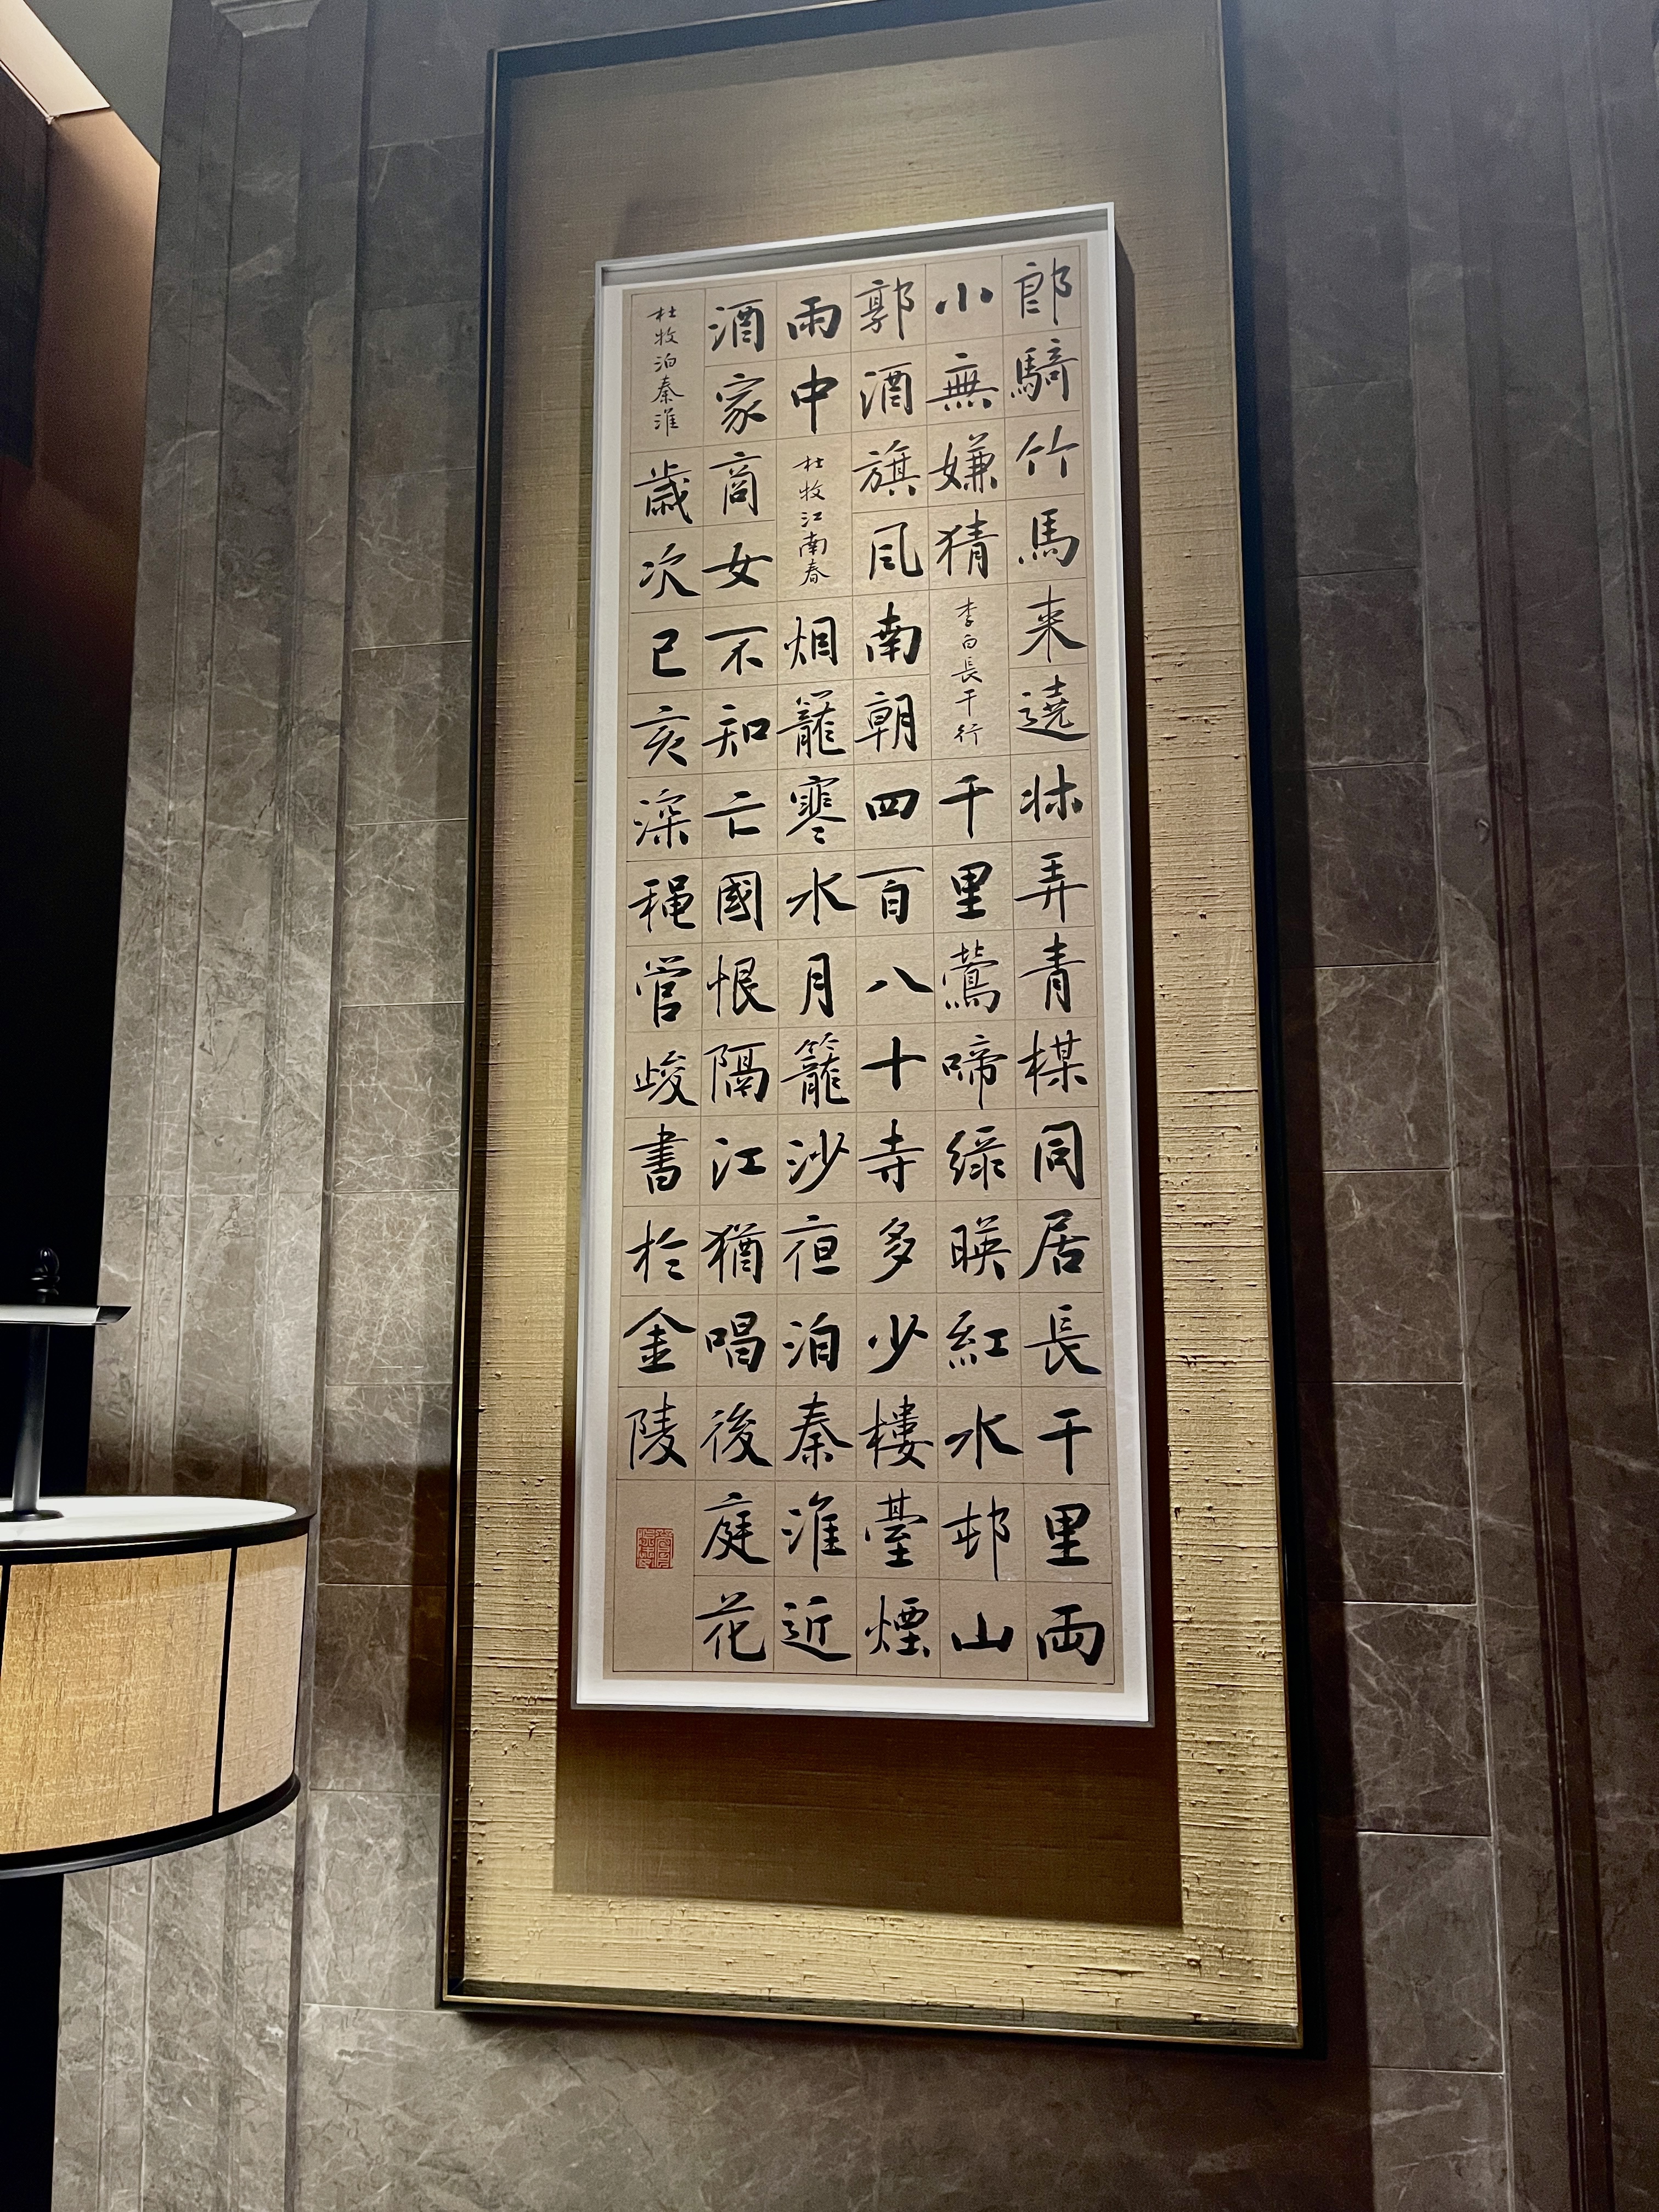 郎騎竹馬来遶牀弄青楳同居長干里両
小無嫌猜李白長干行千里鶯啼綠暎紅水邨山
郭酒旗風南朝四百八十寺多少樓臺煙
雨中杜牧江南春烟籠寒水月籠沙夜泊秦淮近
酒家商女不知亡國恨隔江猶唱後庭花
杜牧泊秦淮歲次己亥深穐管峻書於金陵